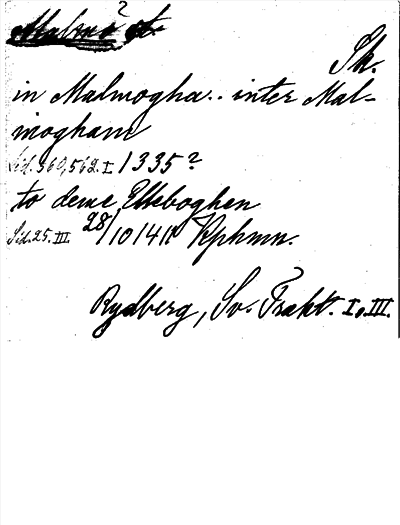 Malmö ? st.
Sk.
in Malmogha.. inter Mal-
mogham
Sid. 560, 562. I 1335?
to deme Elleboghen
Sid. 25. III. 28/10 141 Kphmn.
Rydberg, Sv. Trakt. I o. III.